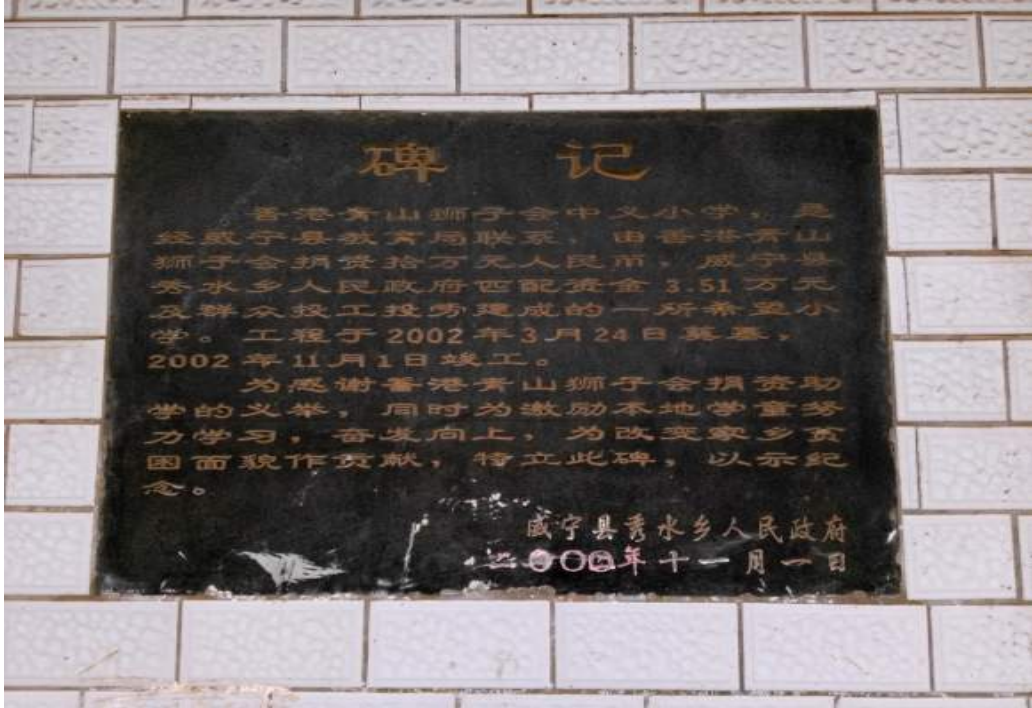 碑 记
香港青山狮子会中义小学，是
经威宁县教育局联系，由香港青山
狮子会捐资拾万元人民币，威宁县
秀水乡人民政府匹配资金 3.51 万元
及群众投工投劳建成的一所希望小
学。工程于 2002 年 3 月 24 日奠基，
2002 年 11 月 1 日竣工。
为感谢香港青山狮子会捐资助
学的义举，同时为激励本地学童努
力学习，奋发向上，为改变家乡贫
困面貌作贡献，特立此碑，以示纪
念。
威宁县秀水乡人民政府
二〇〇四年十一月一日